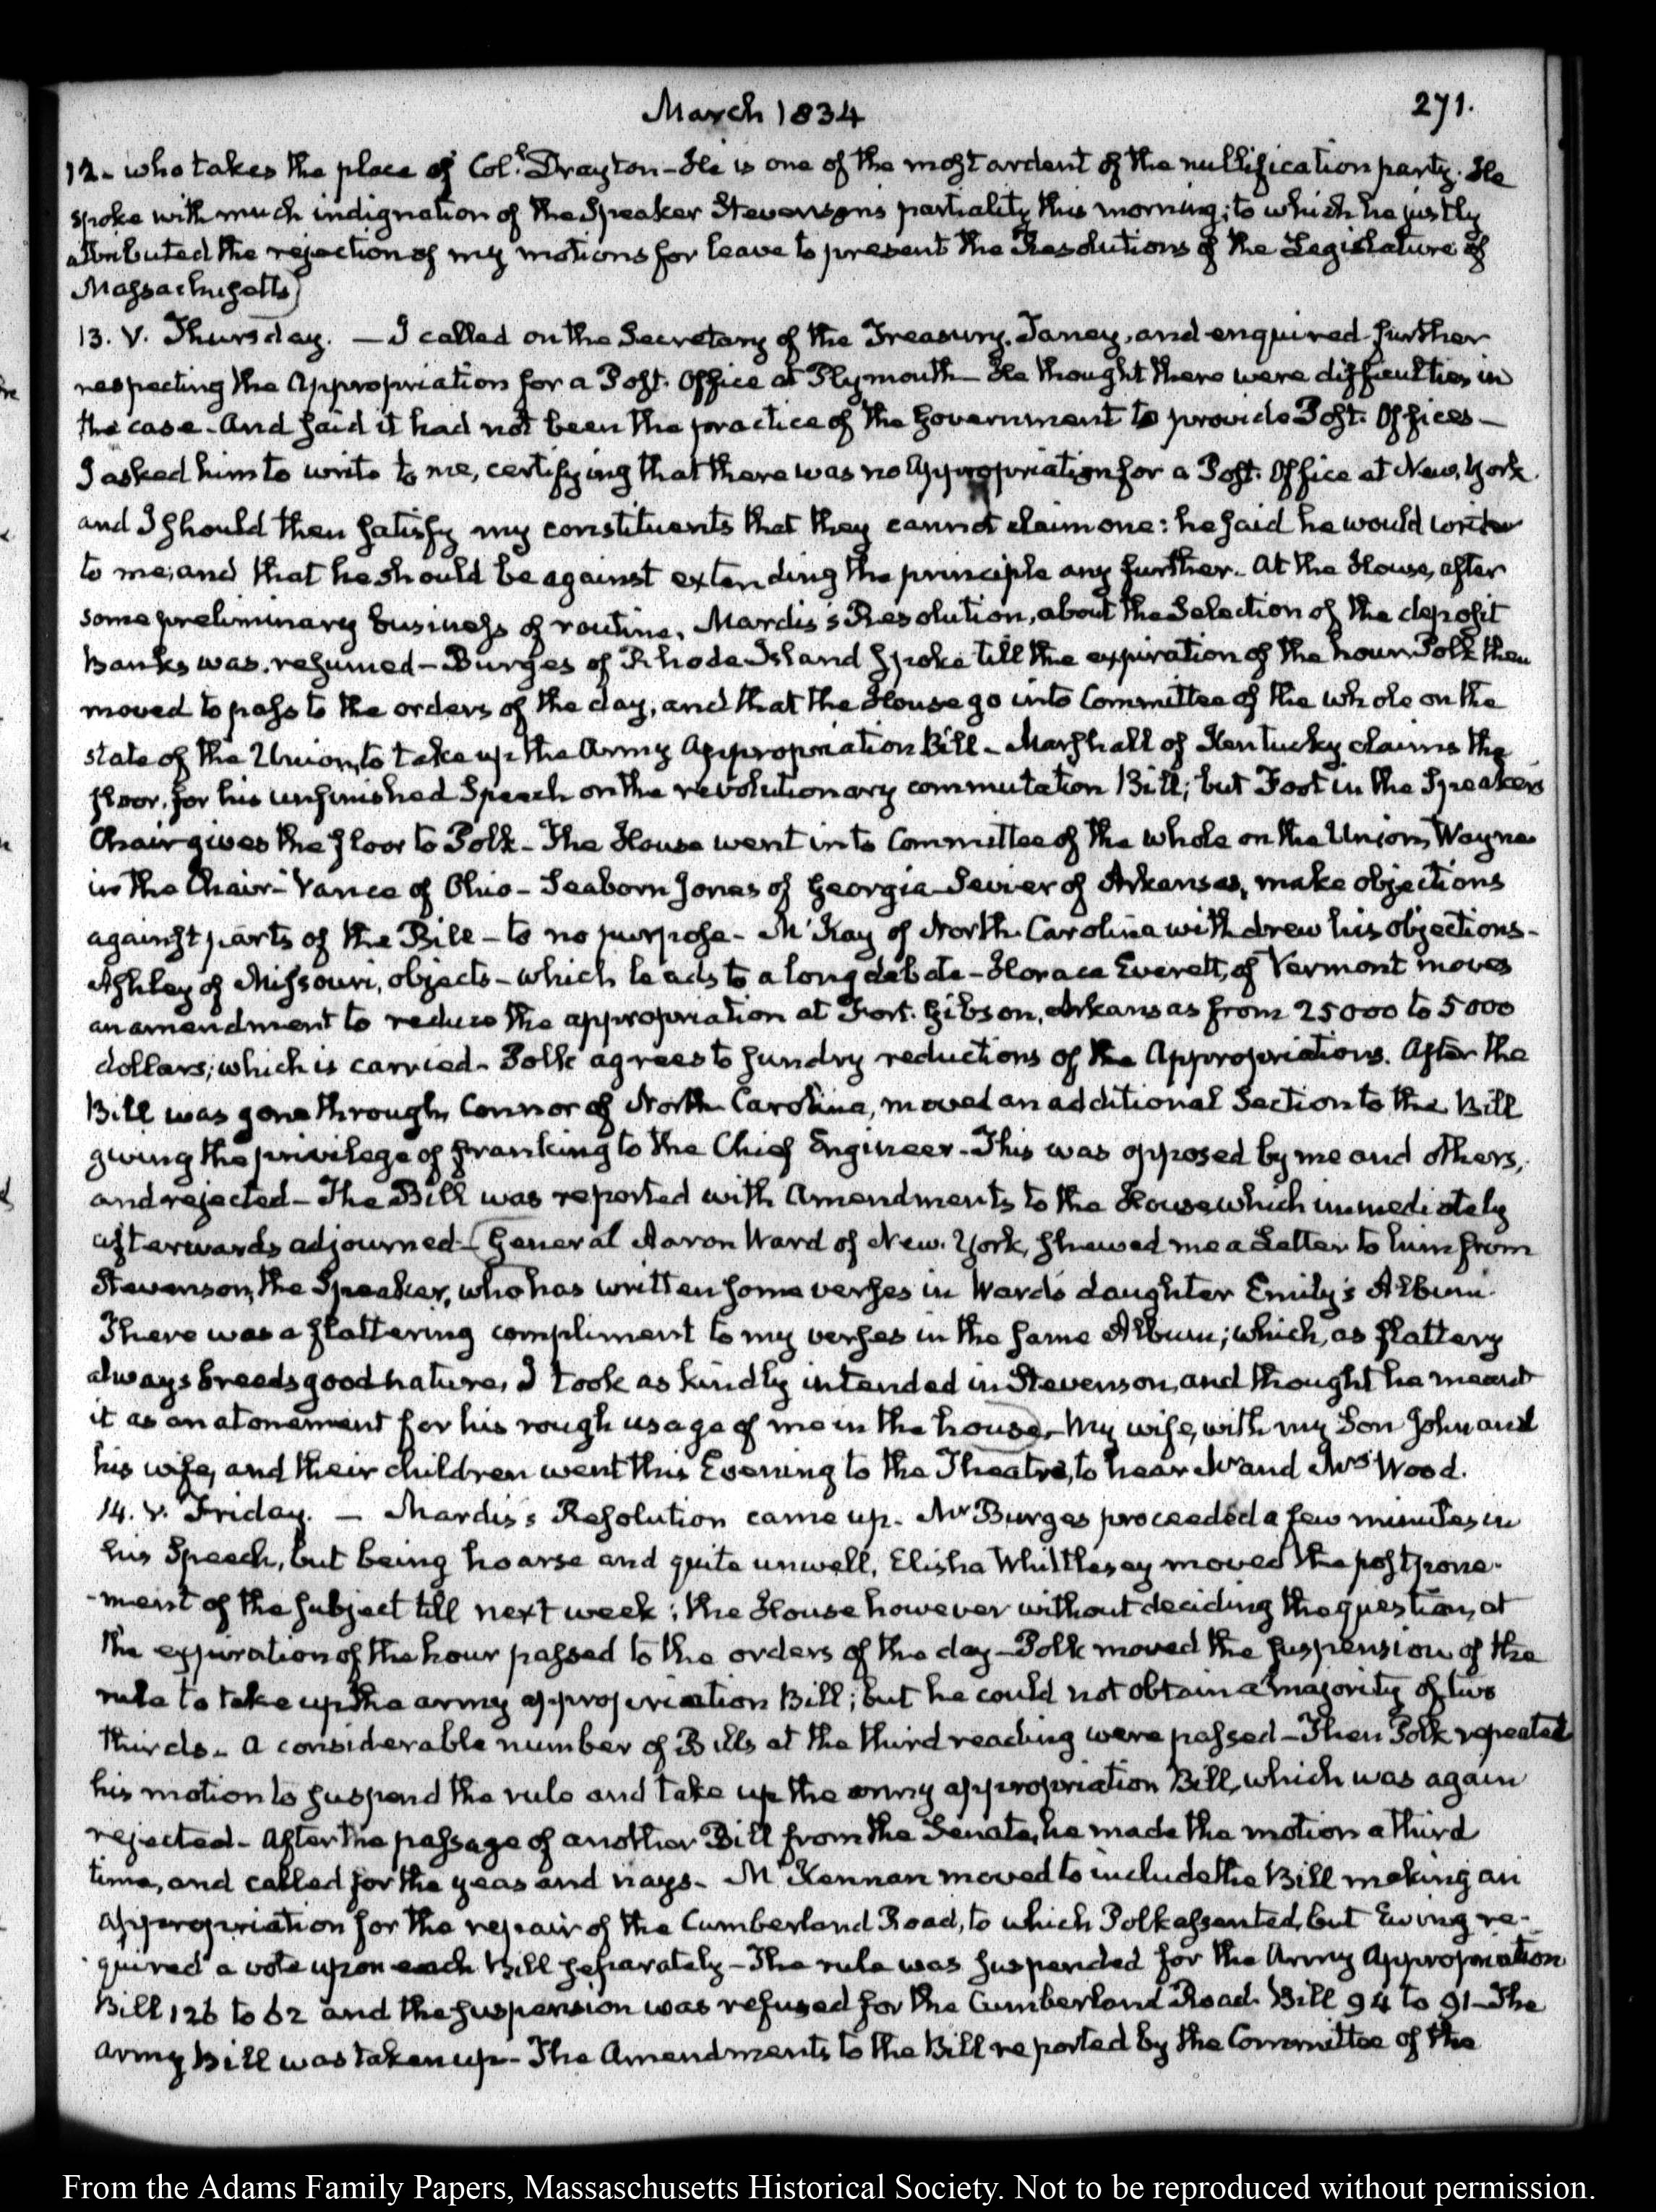 March 1834
271.
12- who takes the place of Col.l Drayton - He is one of the most ardent of the nullification party. He
spoke with much indignation of the Speaker Stevenson's partiality this morning; to which he justly
attributed the rejection of my motions for leave to present the Resolutions of the Legislature of
Massachusetts)
13. V. Thursday. — I called on the Secretary of the Treasury, Taney, and enquired further
respecting the Appropriation for a Post. Office at Plymouth — He thought there were difficulties in
the case - And said it had not been the practice of the Government to provide Post. Offices —
I asked him to write to me, certifying that there was no Appropriation for a Post. Office at New York.
and I should then satisfy my constituents that they cannot claim one: he said he would write
to me, and that he should be against extending the principle any further. At the House, after
some preliminary business of routine, Mardis's Resolution, about the Selection of the deposit
Banks was resumed - Burges of Rhode Island spoke till the expiration of the hour Polk then
moved to pass to the orders of the day, and that the House go into Committee of the whole on the
state of the Union, to take up the Army Appropriation Bill - Marshall of Kentucky claims the
floor, for his unfinished Speech on the revolutionary commutation Bill; but Foot in the Speakers
Chair gives the floor to Polk - The House went into Committee of the whole on the Union, Wayne
in the Chair - Vance of Ohio - Seaborn Jones of Georgia - Sevier of Arkansas, make objections
against parts of the Bill - to no purpose - McKay of North Carolina withdrew his objections -
Ashley of Missouri, objects - which leads to a long debate - Horace Everett, of Vermont moves
an amendment to reduce the appropriation at Fort. Gibson, Arkansas from 25000 to 5000
dollars; which is carried - Polk agrees to sundry reductions of the Appropriations. After the
Bill was gone through, Connor of North Carolina, moved an additional Section to the Bill
giving the privilege of franking to the Chief Engineer - This was opposed by me and others,
and rejected - The Bill was reported with Amendments to the House, which immediately
afterwards adjourned - (General Aaron Ward of New York, shewed me a Letter to him from
Stevenson, the Speaker, who has written some verses in Ward's daughter Emily's Album.
There was a flattering compliment to my verses in the same Album; which, as flattery
always breeds good nature, I took as kindly intended in Stevenson, and thought he meant
it as an atonement for his rough usage of me in the house) - My wife, with my Son John and
his wife, and their children went this Evening to the Theatre, to hear Mr and Mrs Wood.
14. V. Friday. — Mardis's Resolution came up - Mr Burges proceeded a few minutes in
his Speech, but being hoarse and quite unwell, Elisha Whittlesey moved the postpone-
-ment of the subject till next week; the House however without deciding the question, at
the expiration of the hour passed to the orders of the day - Polk moved the suspension of the
rule to take up the army appropriation Bill; but he could not obtain a majority of two
thirds - A considerable number of Bills at the third reading were passed - Then Polk repeated
his motion to suspend the rule and take up the army appropriation Bill, which was again
rejected - After the passage of another Bill from the Senate, he made the motion a third
time, and called for the yeas and nays - McKennan moved to include the Bill making an
appropriation for the repair of the Cumberland Road, to which Polk assented, but Ewing re-
quired a vote upon each Bill separately - The rule was suspended for the Army Appropriation
Bill 126 to 62 and the suspension was refused for the Cumberland Road Bill 94 to 91 - The
Army Bill was taken up - The Amendments to the Bill reported by the Committee of the
From the Adams Family Papers, Massachusetts Historical Society. Not to be reproduced without permission.